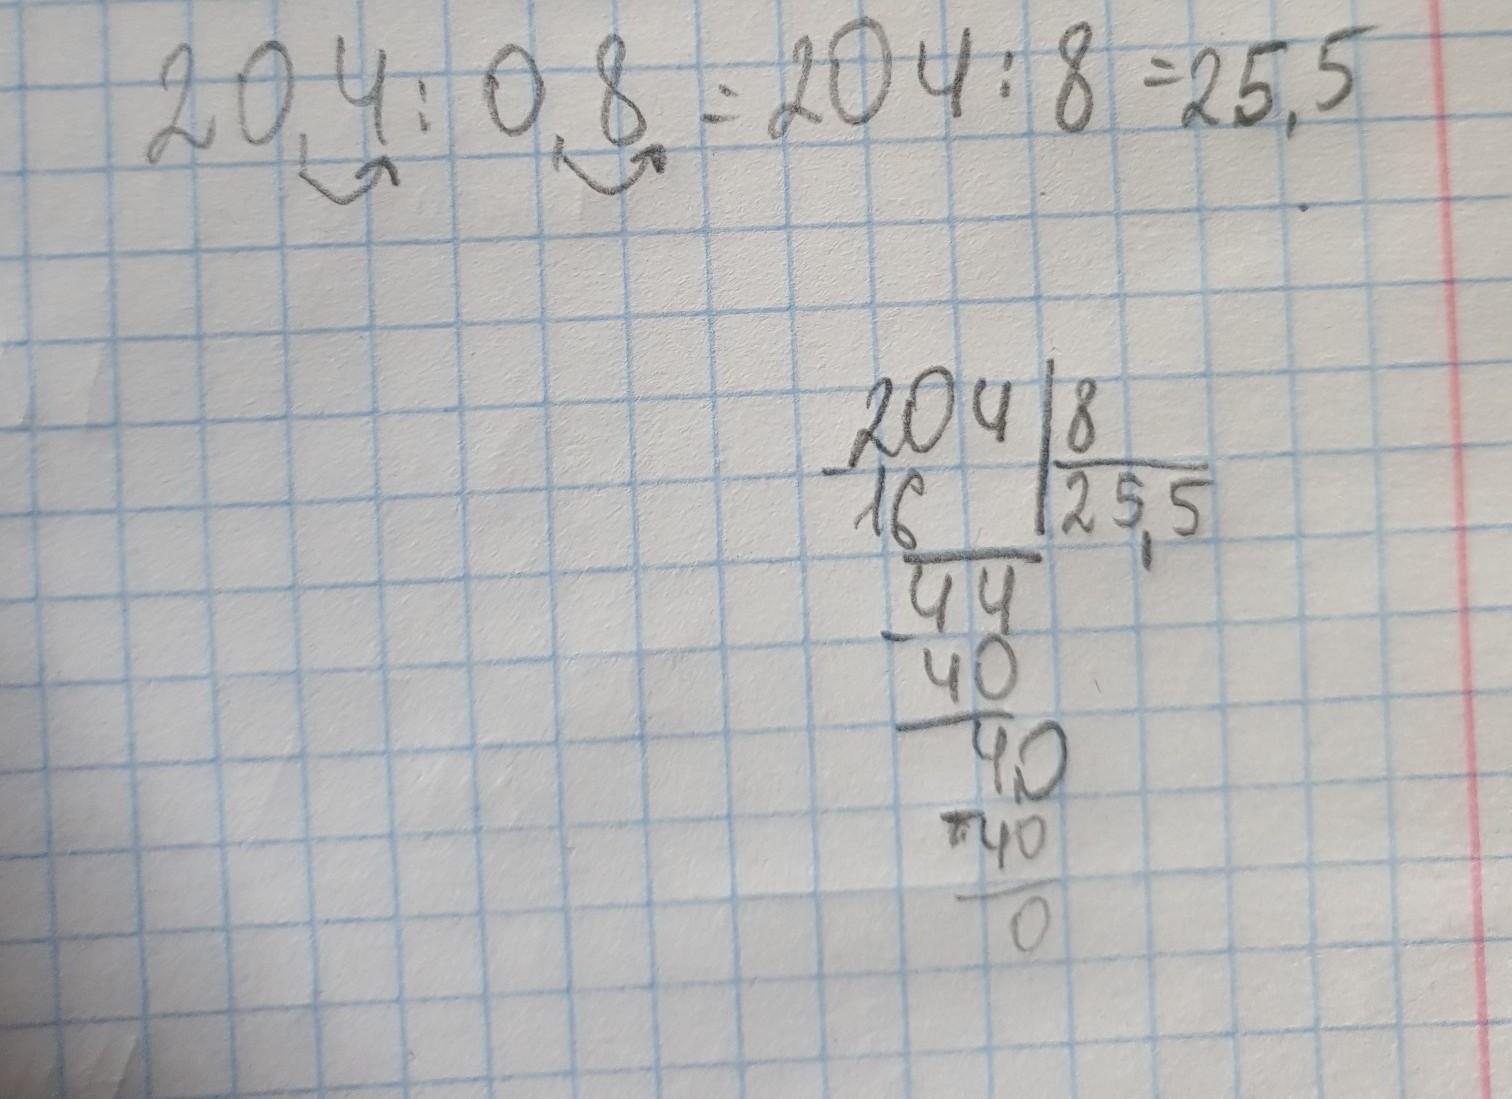 20,4 : 0,8 = 204 : 8 = 25,5
204 | 8
- 16 | 25,5
44
- 40
40
- 40
0